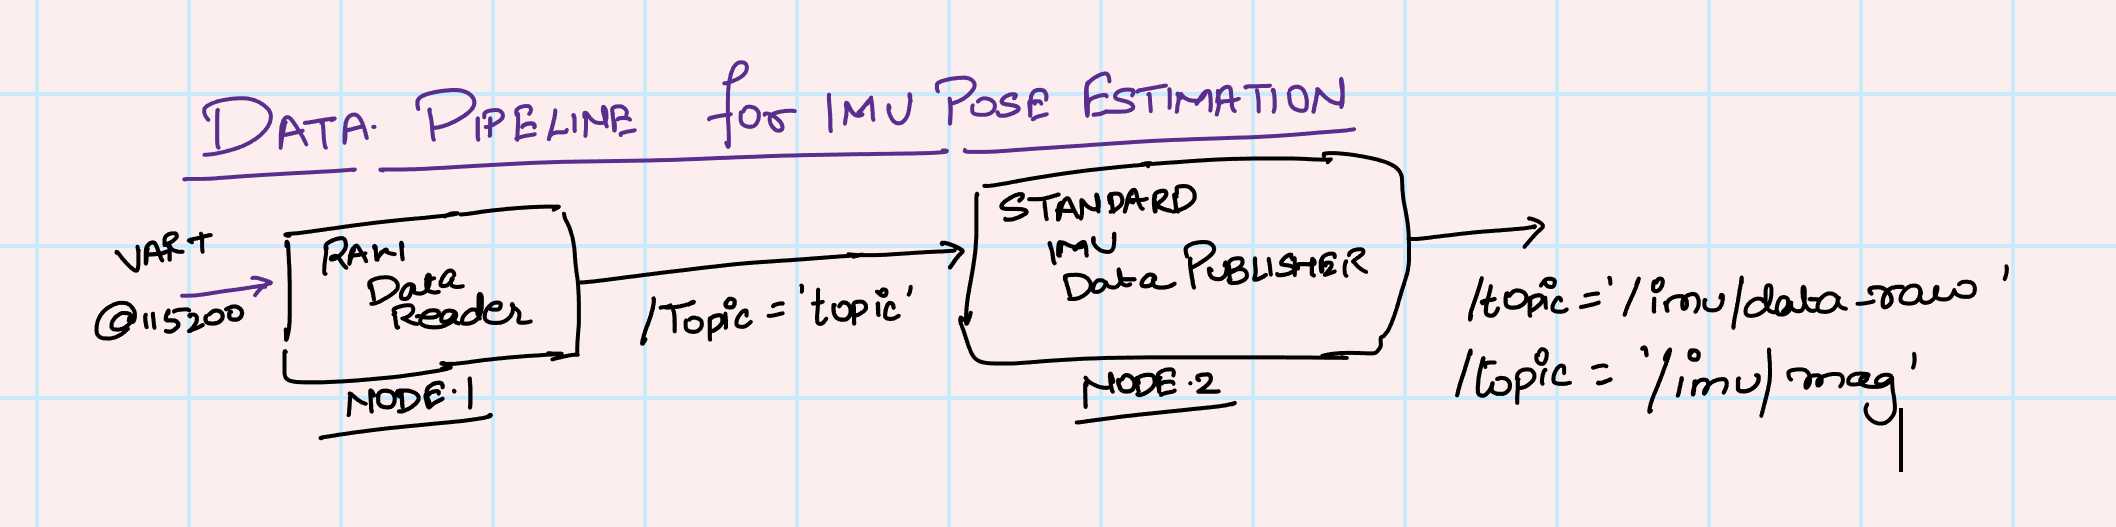 DATA PIPELINE for IMU POSE ESTIMATION
UART
@115200
RAW
Data
Reader
NODE.1
/Topic = 'topic'
STANDARD
IMU
Data PUBLISHER
NODE.2
/topic = '/imu/data_raw'
/topic = '/imu/mag'